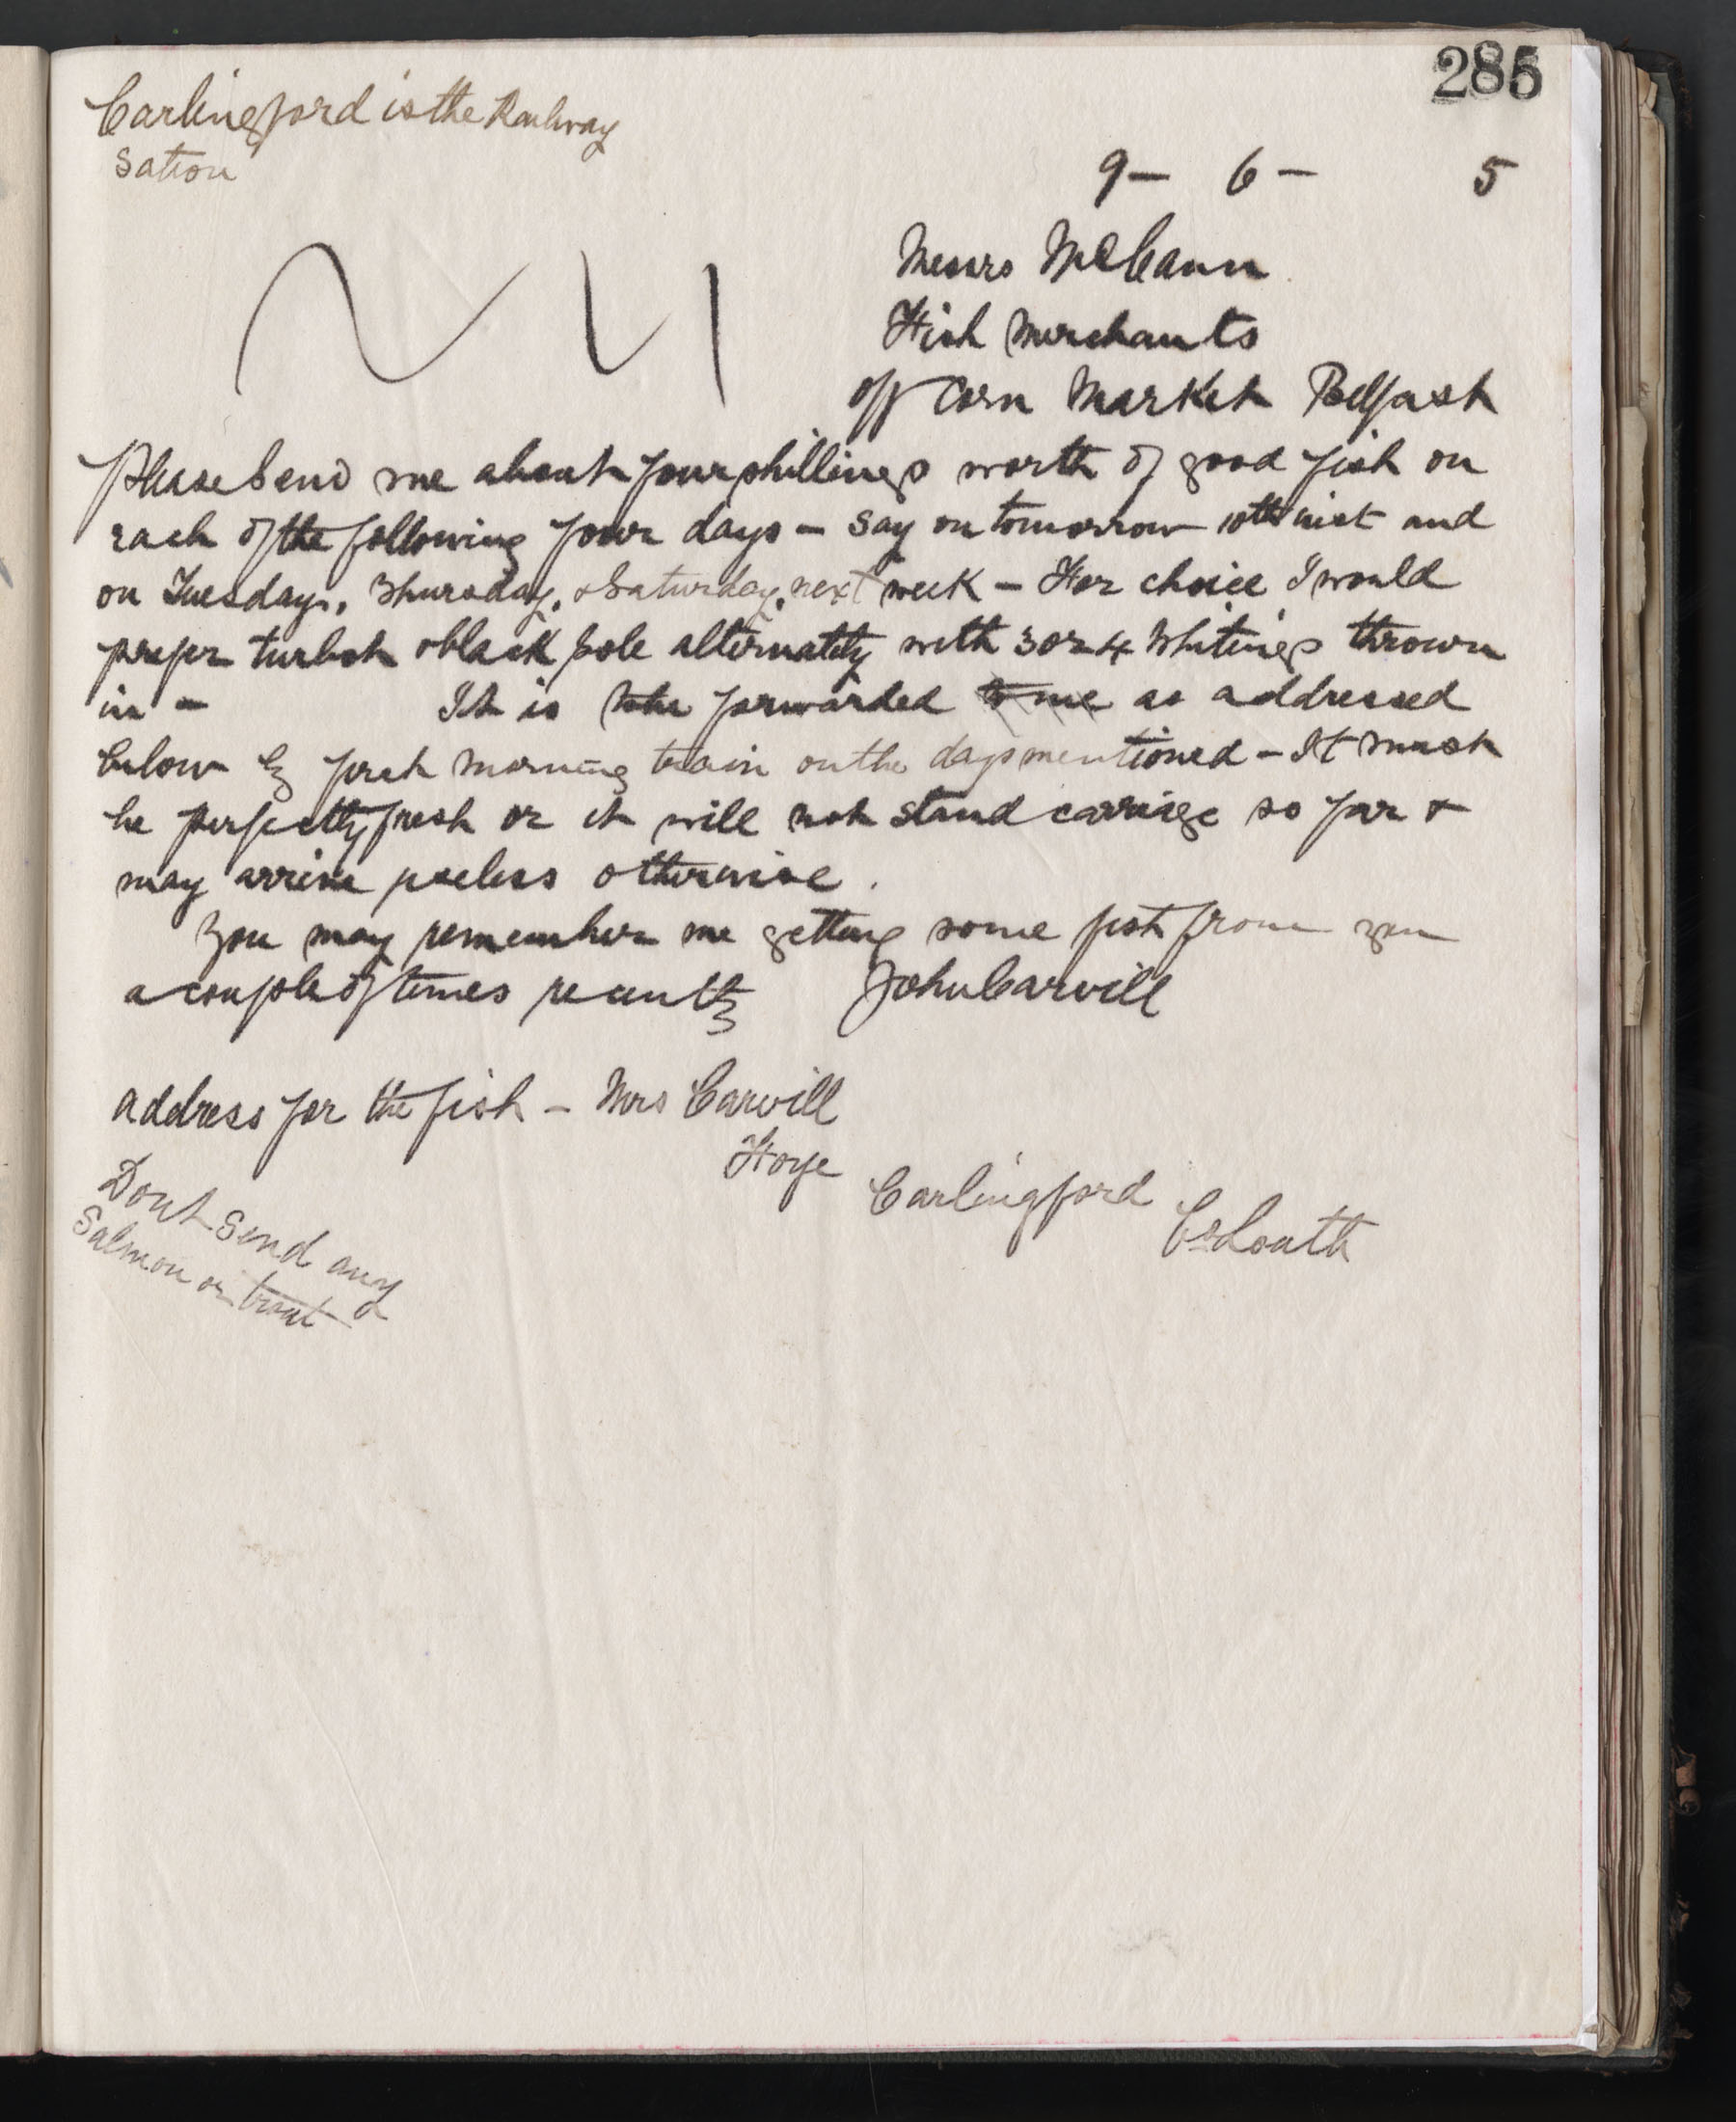 285
Carlingford is the Railway
Sation
9 - 6 - 5
Messrs McCann
Fish Merchants
off Corn Market Belfast
Please Send me about four shillings worth of good fish on
each of the following four days - say on tomorrow 10th inst and
on Tuesday, Thursday, & Saturday, next week - For choice I would
prefer turbot & black Sole alternately with 3 or 4 Whitings thrown
in - It is to be forwarded to me as addressed
below by first morning train on the days mentioned - It must
be perfectly fresh or it will not stand carriage so far &
may arrive useless otherwise.
You may remember me getting some fish from you
a couple of times recently John Carvill
Address for the fish - Mrs Carvill
Carlingford
Co Louth
Dont Send any
Salmon or trout